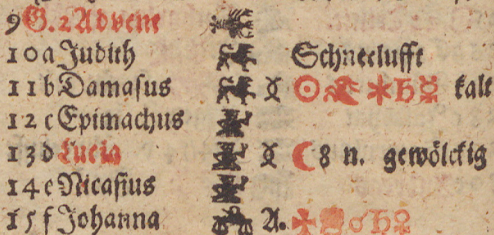 9 G. 2 Advent
10 a Judith Schneelufft
11 b Damasus ☿ ☉ ☊ ✶ ♄ ☿ kalt
12 c Epimachus
13 d Lucia ☿ ☾ 8 n. gewölckig
14 e Nicasius
15 f Johanna A. ✠ ♂ ♄ ♀